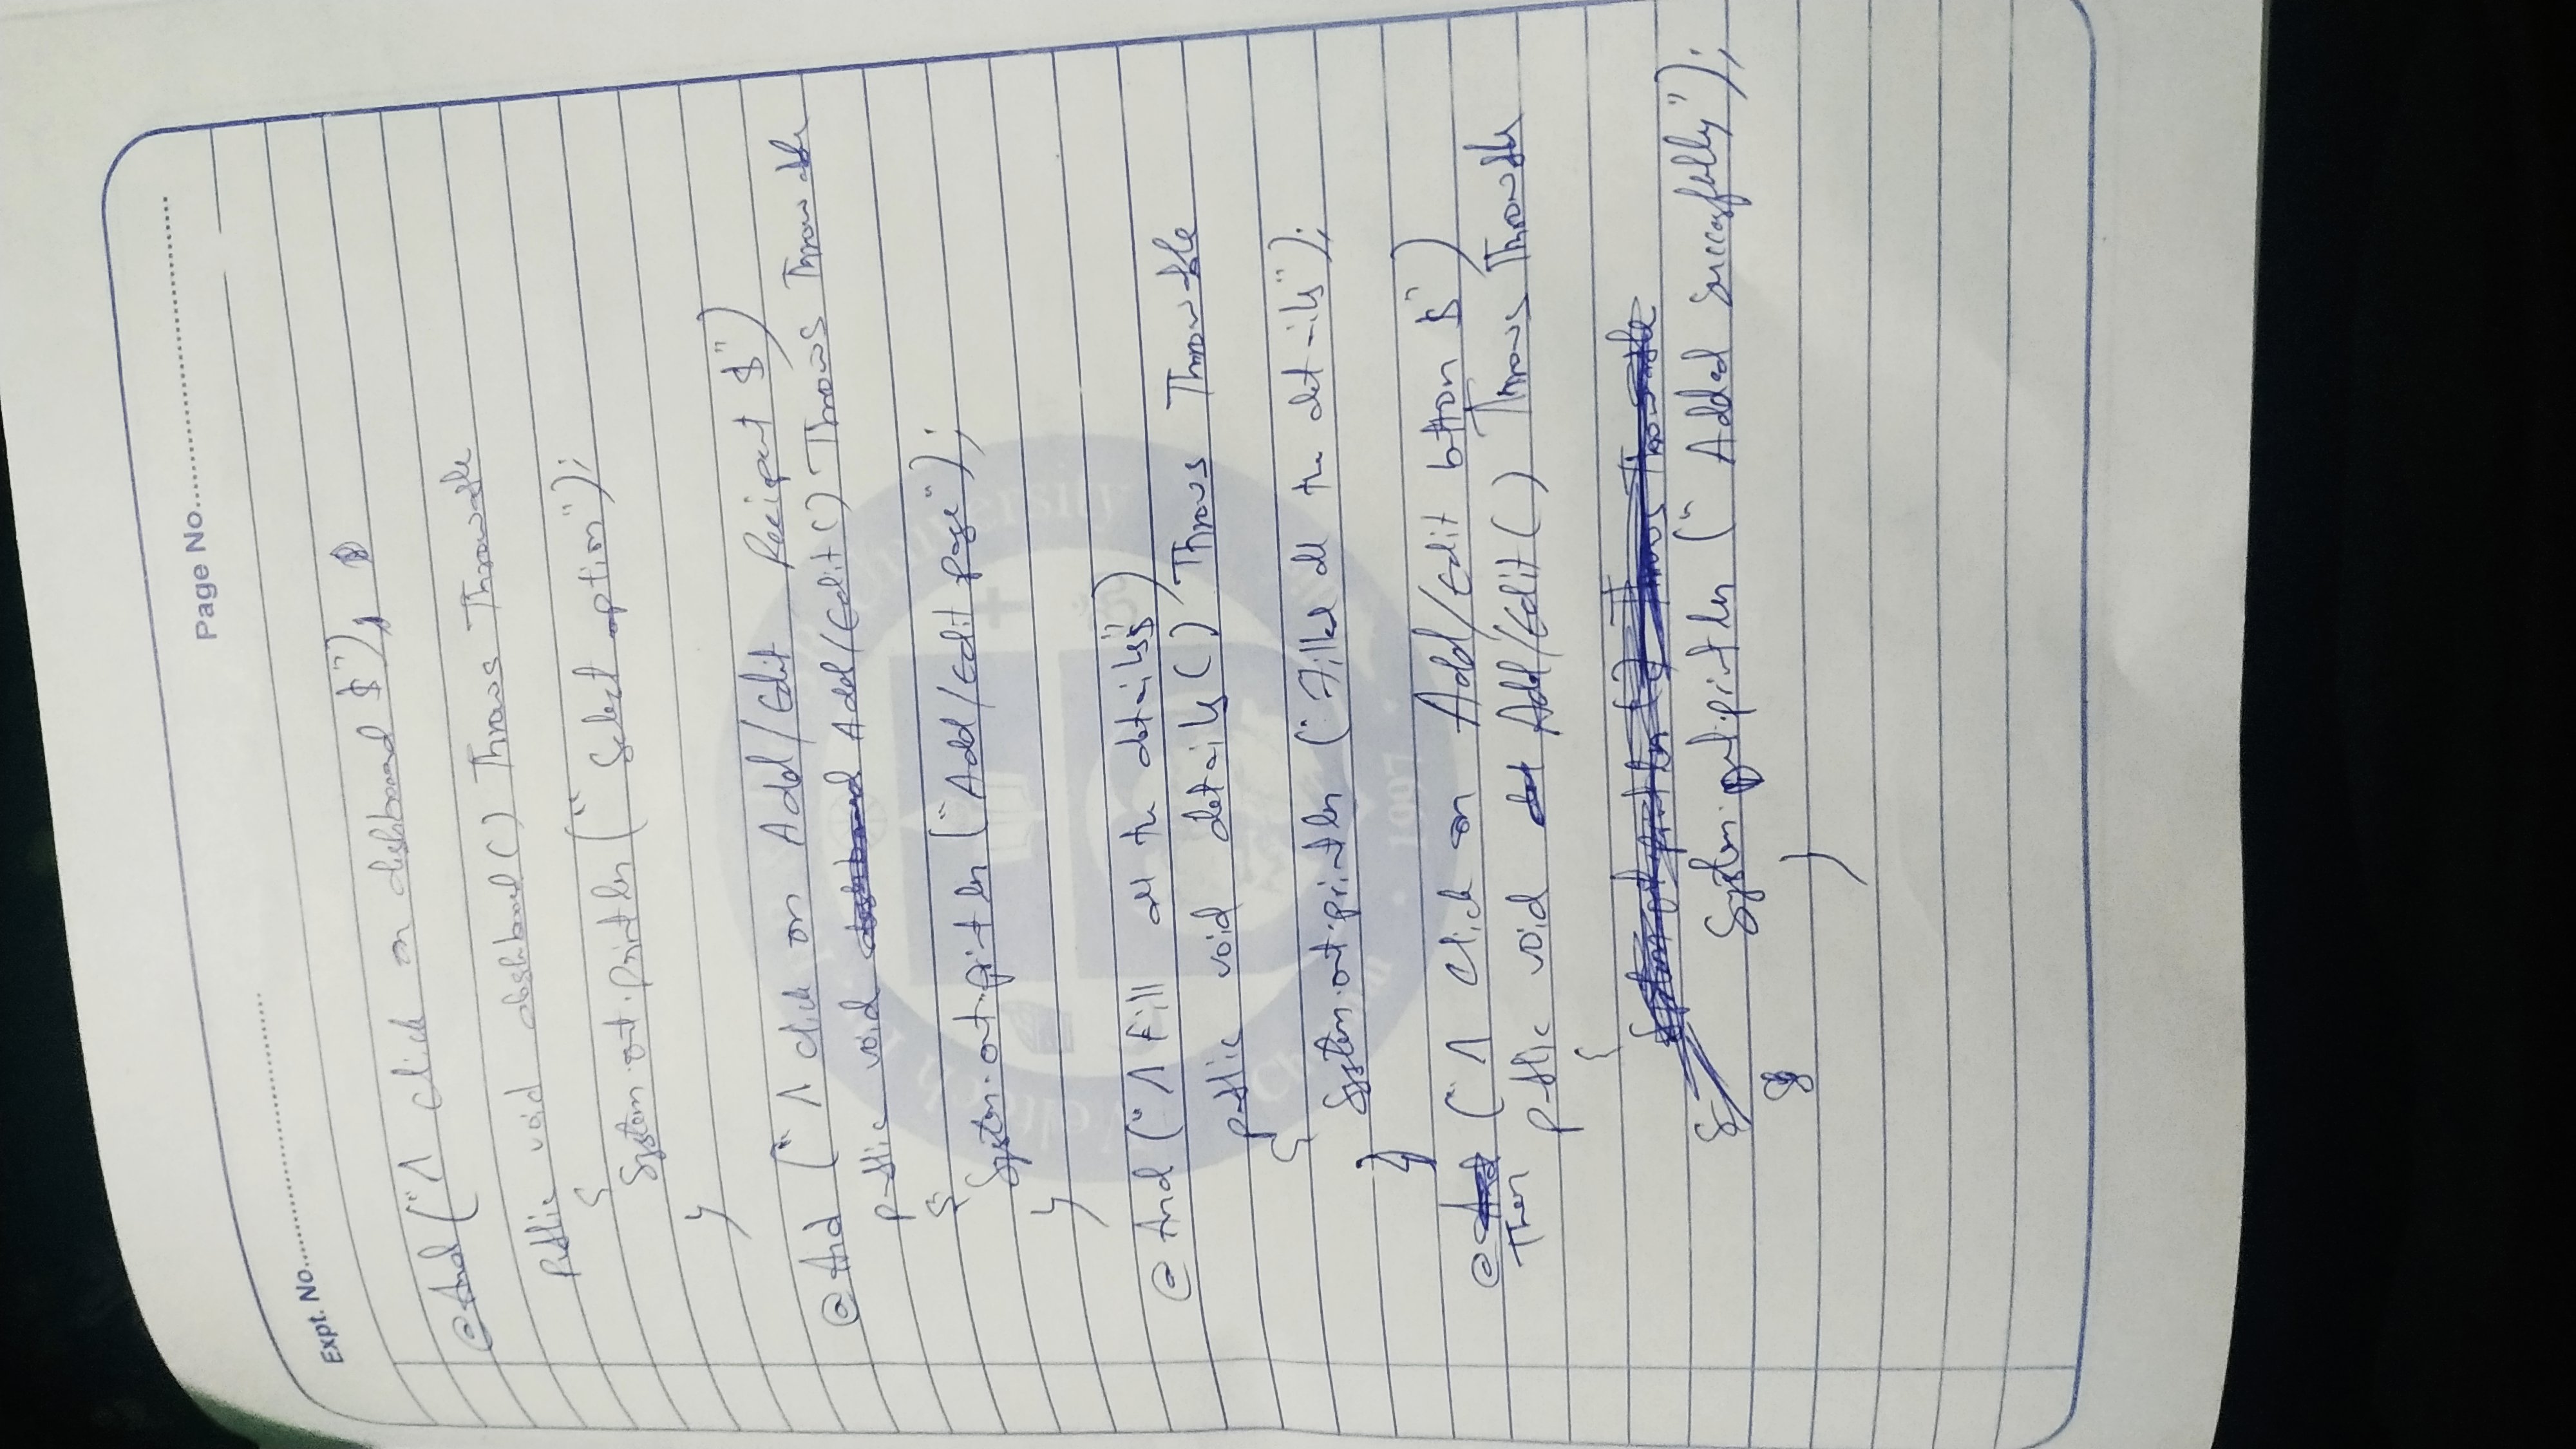 Expt. No........................ Page No........................
@And("^ click on dashboard $")
Public void dashboard() Throws Throwable
{
System.out.println("Select option");
}
@And("^ click on Add/Edit Recipent $")
public void Add/Edit() Throws Throwable
{
System.out.println("Add/Edit page");
}
@And("^ Fill all the details")
public void details() Throws Throwable
{
System.out.println("Filled all the details");
}
@Then("^ click on Add/Edit button $")
public void Add/Edit() Throws Throwable
{
System.out.println("Added successfully");
}
Veltech
University
1997